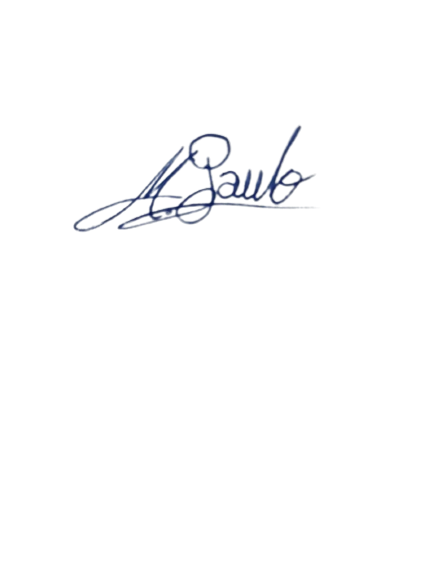 M. Paulo